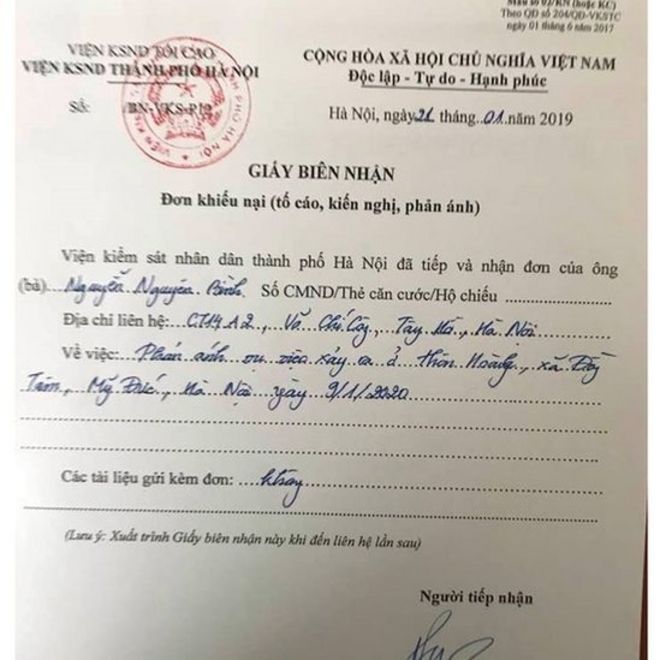 Mẫu số 02/KN (hoặc KC)
Theo QĐ số 204/QĐ-VKSTC
ngày 01 tháng 6 năm 2017
VIỆN KSND TỐI CAO
VIỆN KSND THÀNH PHỐ HÀ NỘI
CỘNG HÒA XÃ HỘI CHỦ NGHĨA VIỆT NAM
Độc lập - Tự do - Hạnh phúc
Số: /BN-VKS-P12
Hà Nội, ngày 21 tháng 01 năm 2019
GIẤY BIÊN NHẬN
Đơn khiếu nại (tố cáo, kiến nghị, phản ánh)
Viện kiểm sát nhân dân thành phố Hà Nội đã tiếp và nhận đơn của ông
(bà) Nguyễn Nguyên Bình Số CMND/Thẻ căn cước/Hộ chiếu
Địa chỉ liên hệ: CT14 A2, Võ Chí Công, Tây Hồ, Hà Nội
Về việc: Phản ánh vụ việc xảy ra ở thôn Hoành, xã Đồng
Tâm, Mỹ Đức, Hà Nội ngày 9/1/2020
Các tài liệu gửi kèm đơn:
(Lưu ý: Xuất trình Giấy biên nhận này khi đến liên hệ lần sau)
Người tiếp nhận